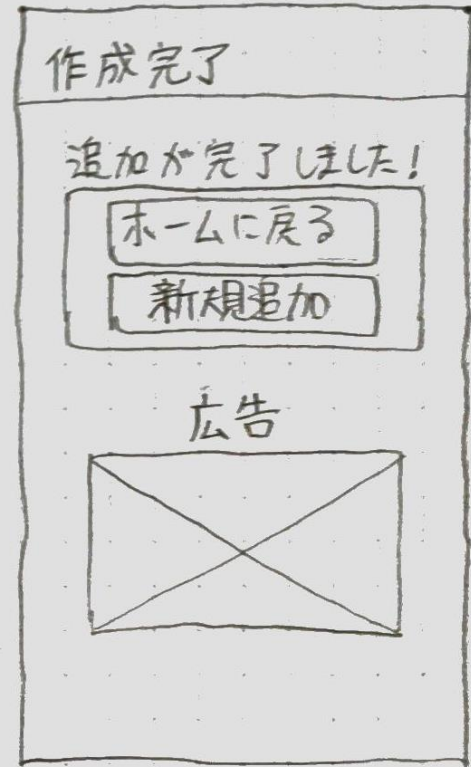 作成完了
追加が完了しました!
ホームに戻る
新規追加
広告